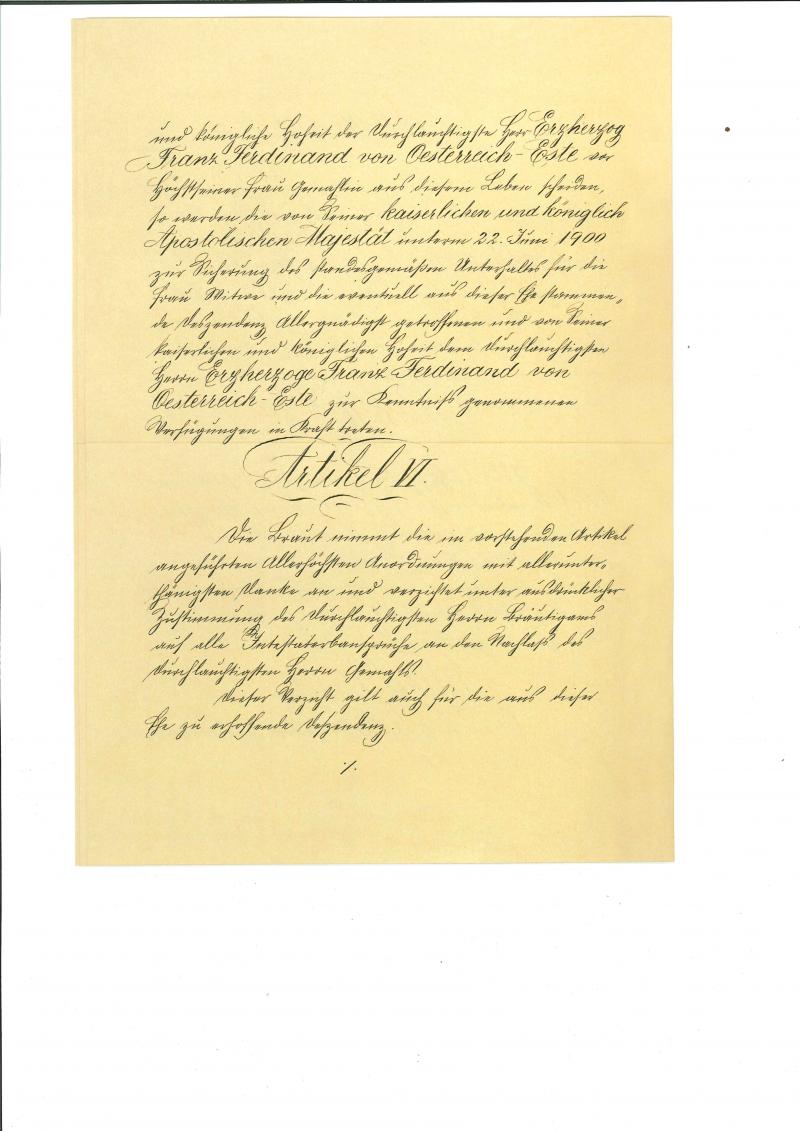 und königliche Hoheit der Durchlauchtigste Herr Erzherzog
Franz Ferdinand von Oesterreich-Este vor
Höchstseiner Frau Gemahlin aus diesem Leben scheiden,
so werden die von Seiner kaiserlichen und königlich
Apostolischen Majestät unterm 22. Juni 1900
zur Sicherung des standesgemäßen Unterhaltes für die
Frau Witwe und die eventuell aus dieser Ehe stammen„
de Deszendenz Allergnädigst getroffenen und von Seiner
kaiserlichen und königlichen Hoheit dem Durchlauchtigsten
Herrn Erzherzoge Franz Ferdinand von
Oesterreich-Este zur Kenntniß genommenen
Verfügungen in Kraft treten.
Artikel VI.
Die Braut nimmt die im vorstehenden Artikel
angeführten Allerhöchsten Anordnungen mit allerunter„
thänigsten Danke an und verzichtet unter ausdrücklicher
Zustimmung des Durchlauchtigsten Herrn Bräutigams
auf alle Intestaterbansprüche an den Nachlaß des
Durchlauchtigsten Herrn Gemahls.
Dieser Verzicht gilt auch für die aus dieser
Ehe zu erhoffende Deszendenz.
./.